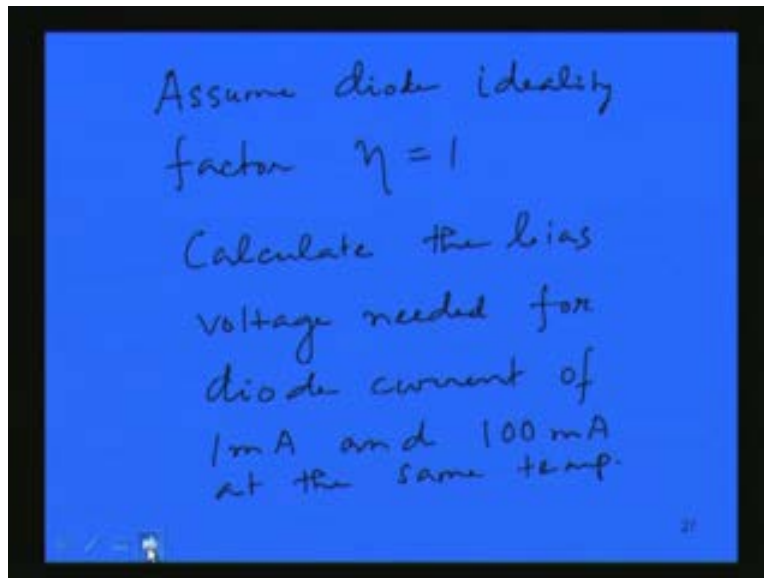 Assume diode ideality
factor η = 1
Calculate the bias
voltage needed for
diode current of
1mA and 100mA
at the same temp.